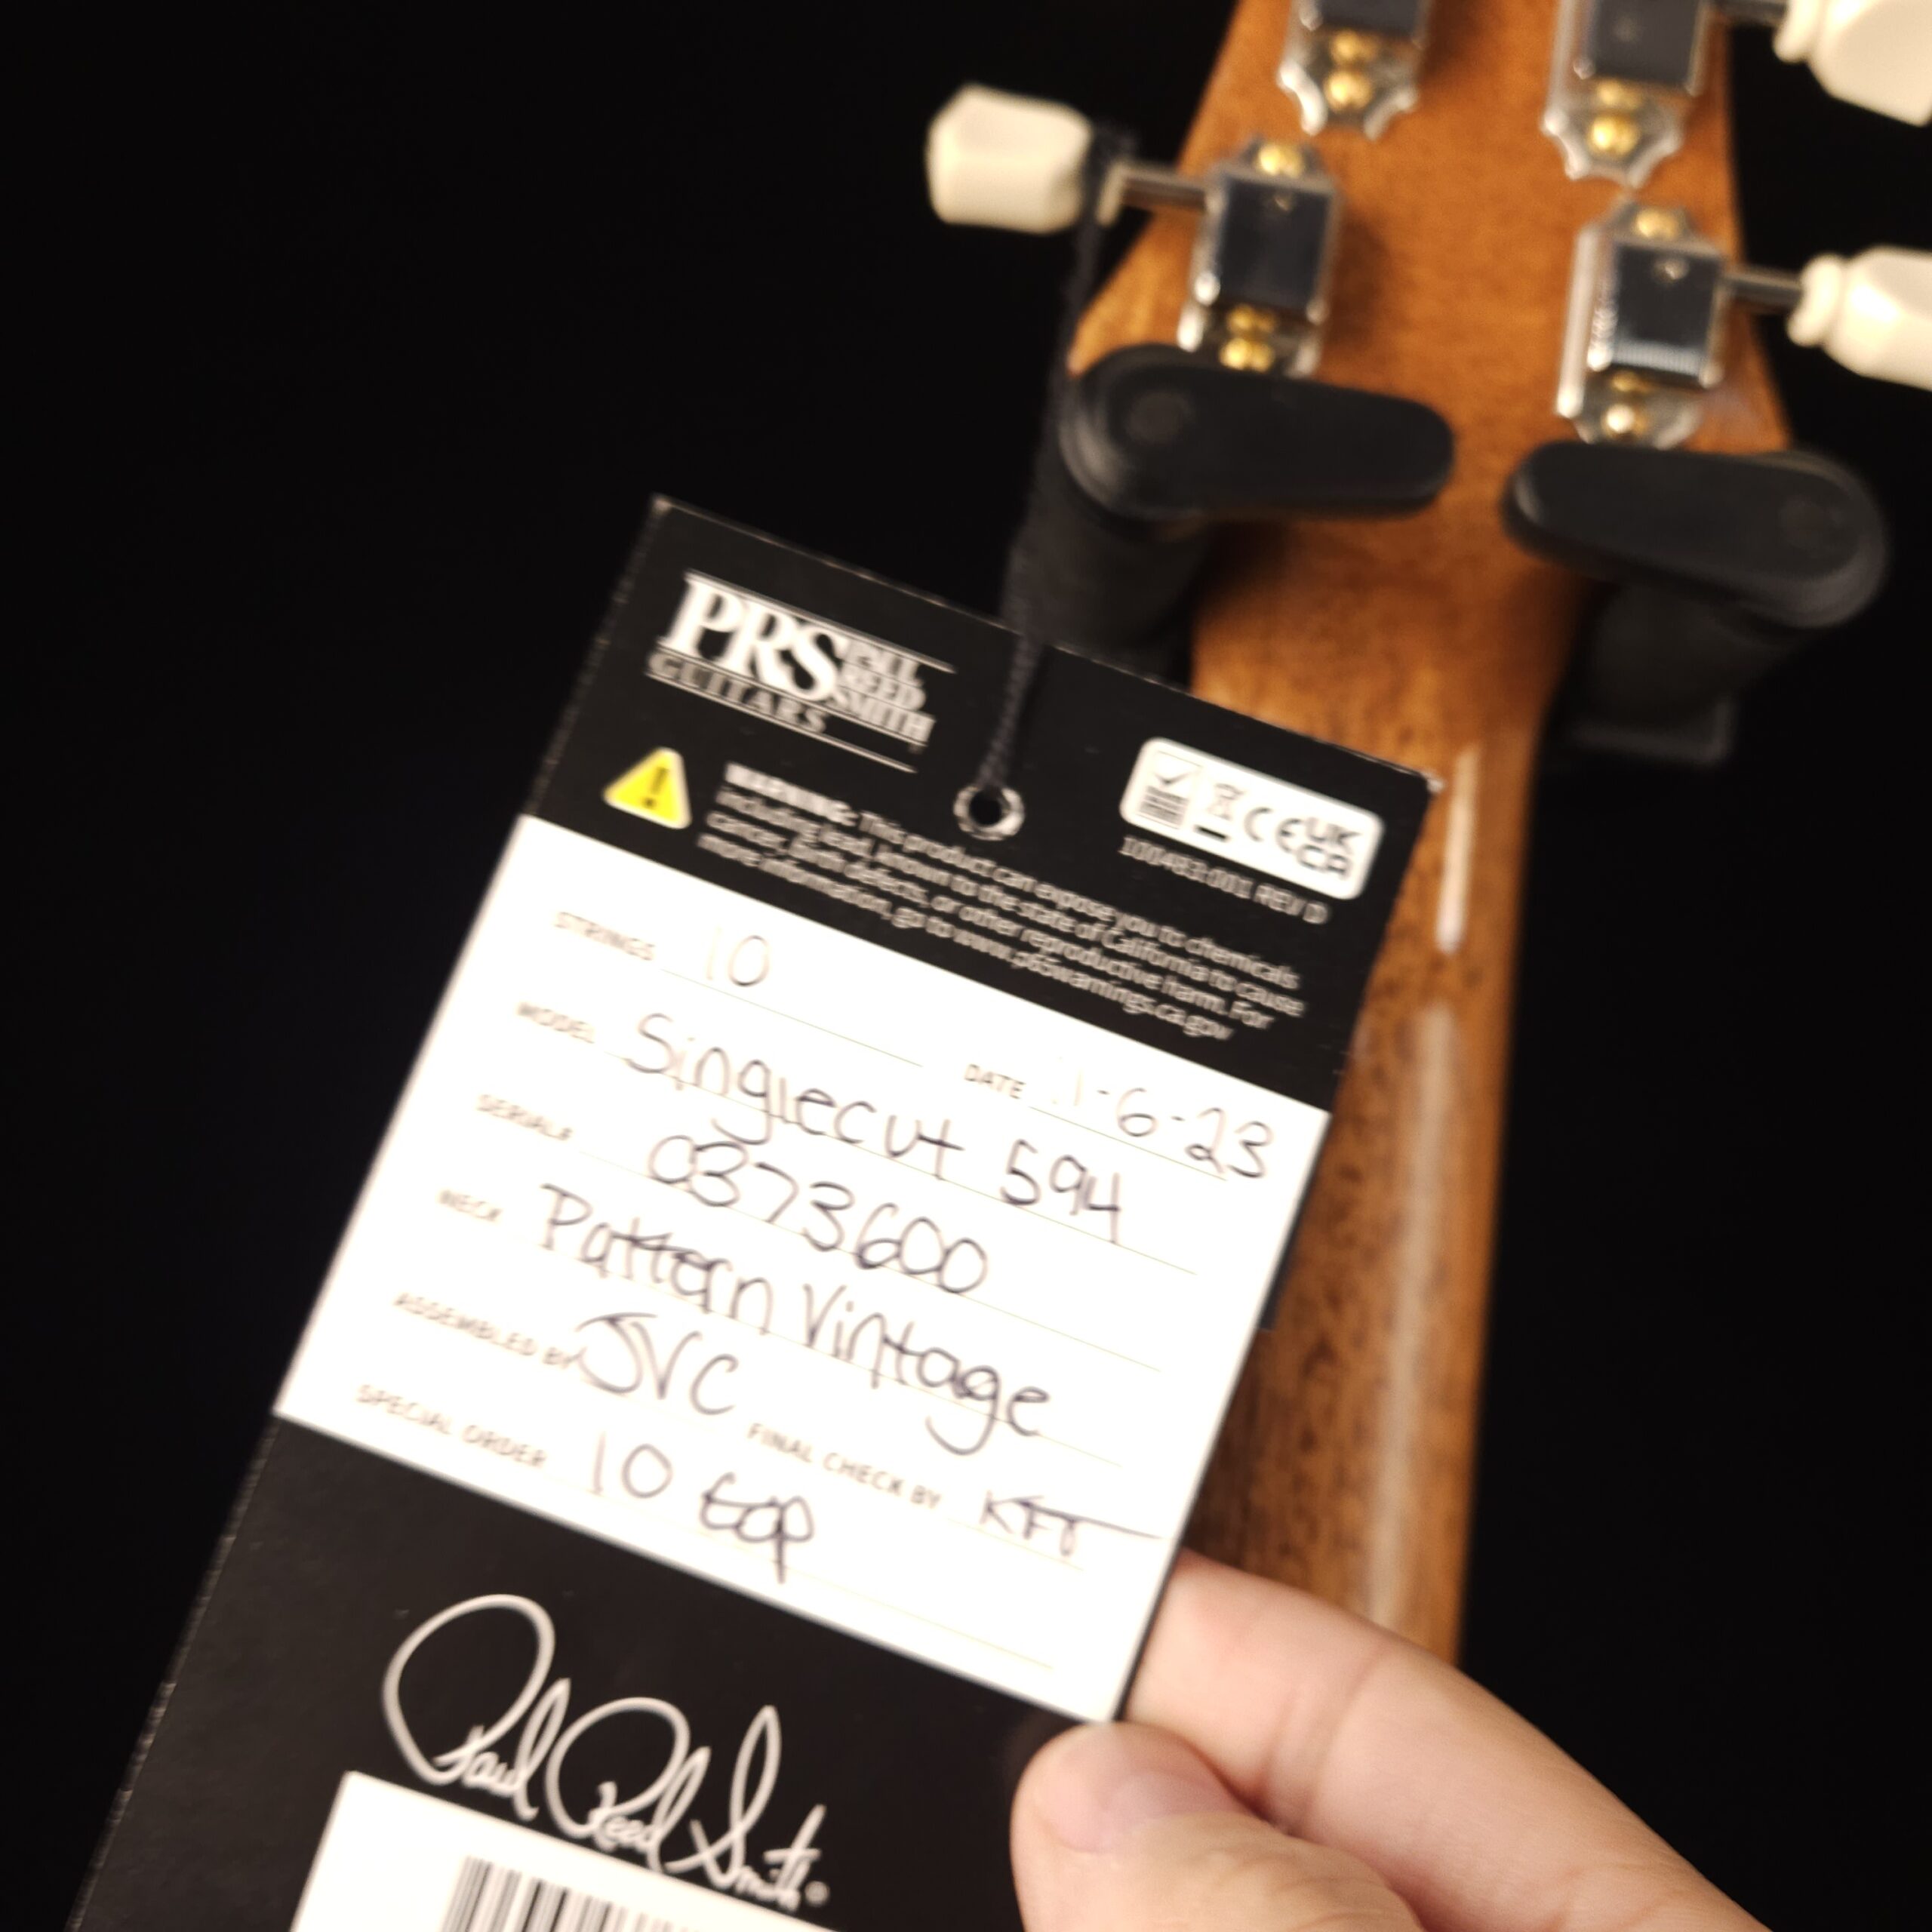 PRS PAUL
REED
SMITH
GUITARS
WARNING: This product can expose you to chemicals
including lead, known to the state of California to cause
cancer, birth defects, or other reproductive harm. For
more information, go to www.p65warnings.ca.gov
CE UK
CA
100483:001 REV D
STRINGS 10
DATE 1-6-23
MODEL Singlecut 594
SERIAL# 0373600
NECK Pattern Vintage
ASSEMBLED BY JVC
FINAL CHECK BY KFT
SPECIAL ORDER 10 top
Paul Reed Smith®